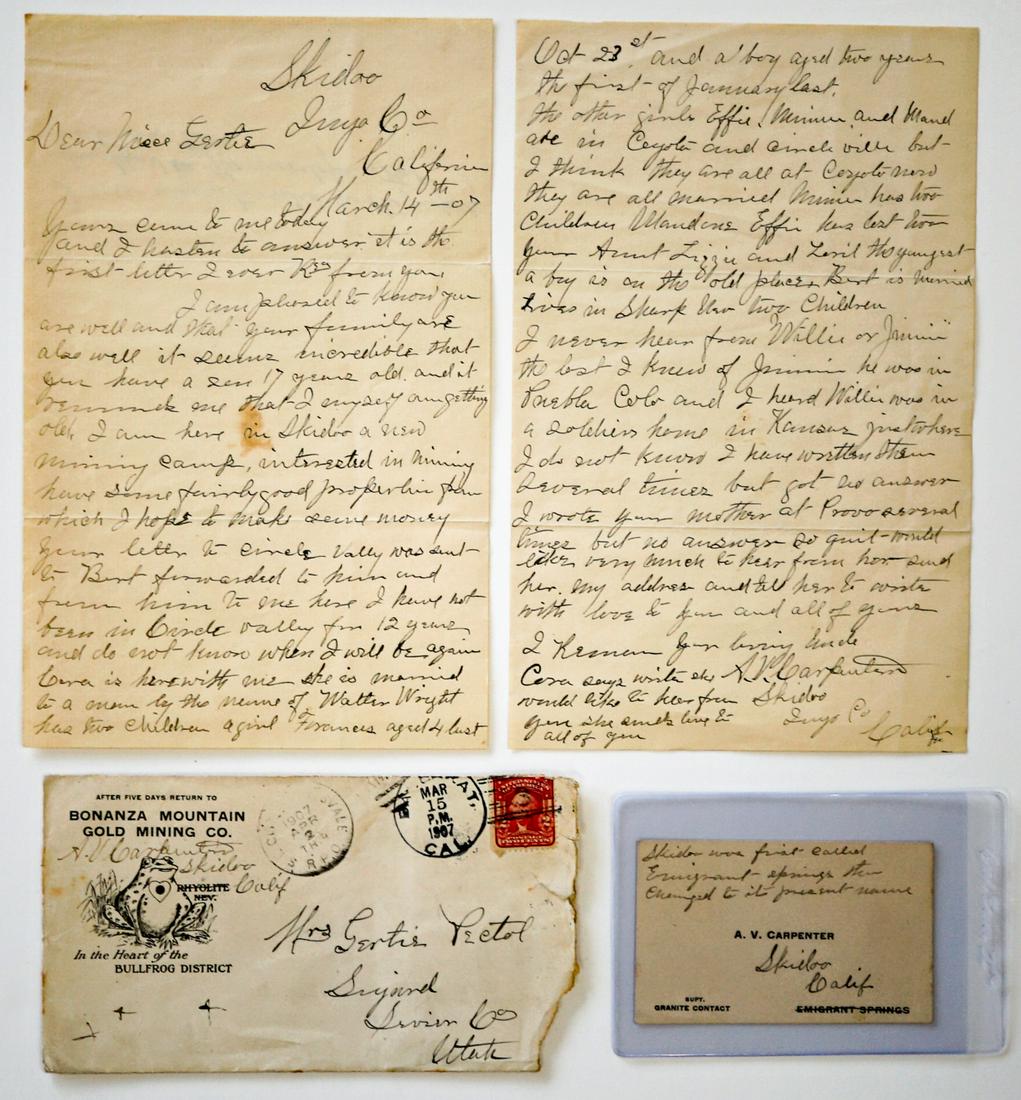 Skidoo
Inyo Co
California
March. 14th - 07
Dear Niece Gertie
Yours came to me today
and I hasten to answer it is the
first letter I ever Rec from you
I am pleased to know you
are well and that your family are
also well it seems incredible that
you have a son 17 years old. and it
reminds me that I myself am getting
old, I am here in Skidoo a new
mining camp, interested in mining
have some fairly good properties from
which I hope to make some money
your letter to Circle Vally was sent
to Bert forwarded to him and
from him to me here I have not
been in Circle valley for 12 years
and do not know when I will be again
Cora is here with me she is married
to a man by the name of Walter Wright
has two children a girl Frances aged 4 last
Oct 23st, and a boy aged two years
the first of January last.
the other girls Effie, Minnie and Maud
are in Coyoto and circleville but
I think they are all at Coyoto now
they are all married Minnie has two
Children Maud one Effie has lost two
your Aunt Lizzie and the youngest
a boy is on the old place, Bert is married
lives in two Children
I never hear from Willie or Jimmie
the last I knew of Jimmie he was in
Puebla Colo and I heard Willie was in
a soldiers home in Kansas just where
I do not know I have written them
several times but got no answer
I wrote your mother at Provo several
times but no answer so quit would
like very much to hear from her send
her my address and tell her to write
with love to you and all of yours
I Remain Your loving Uncle
A. V. Carpenter
Skidoo
Inyo Co
Calif
Cora says write she
would like to hear from
you she sends love to
all of you
AFTER FIVE DAYS RETURN TO
BONANZA MOUNTAIN
GOLD MINING CO.
A. V. Carpenter
Skidoo
RHYOLITE Calif
NEV.
In the Heart of the
BULLFROG DISTRICT
1907
APR
2
MAR
15
P.M.
1907
CAL.
UNITED STATES
OF AMERICA
Mrs Gertie Pectol
Sigurd
Sevier Co
Utah
Skidoo was first called
Emigrant springs then
changed to its present name
A. V. CARPENTER
Skidoo
Calif
SUPT.
GRANITE CONTACT
EMIGRANT SPRINGS